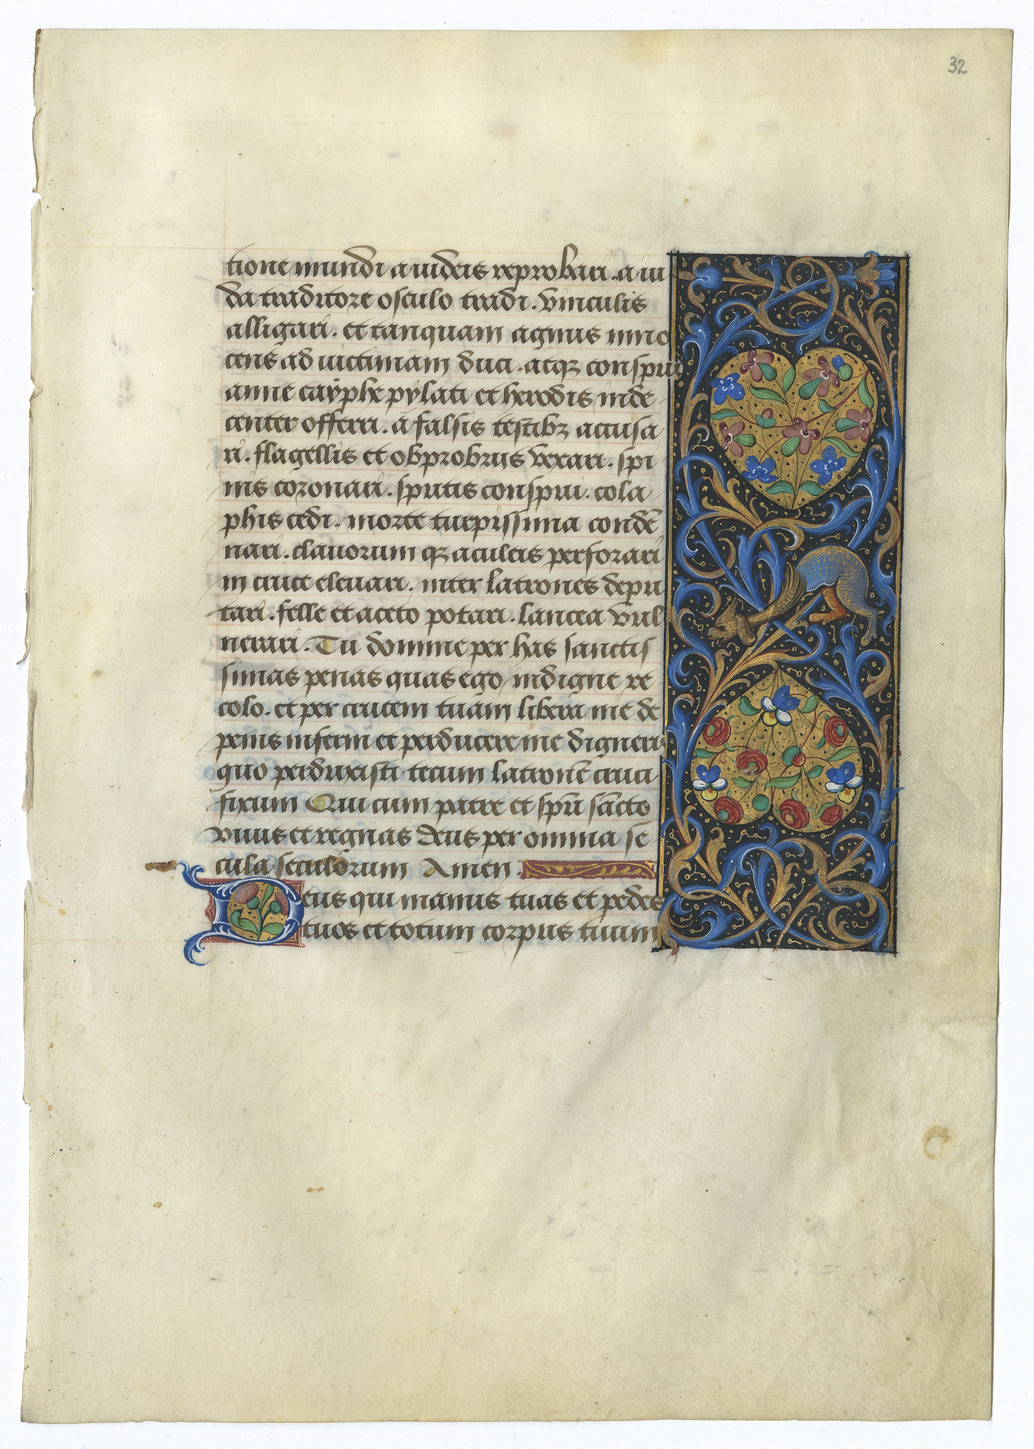 32
tione mundi a iudeis reprobari. a iu
da traditore osculo tradi. vinculis
alligari. et tanquam agnus inno
cens ad victimam duci. atqz conspui
anne cayphe pylati et herodis inde
center offerri. a falsis testibz accusa
ri. flagellis et obprobriis vexari. spi
nis coronari. sputis conspui. cola
phis cedi. morte turpissima condē
nari. clavorum qz aculeis perforari
in cruce elevari. inter latrones depu
tari. felle et aceto potari. lancea vul
nerari. Tu domine per has sanctis
simas penas quas ego indigne re
colo. et per crucem tuam libera me de
penis inferni et perducere me digneris
quo perduxisti tecum latronē cruci
fixum Qui cum patre et spū sancto
vivis et regnas deus per omnia se
cula seculorum Amen.
Deus qui manus tuas et pedes
tuos et totum corpus tuum